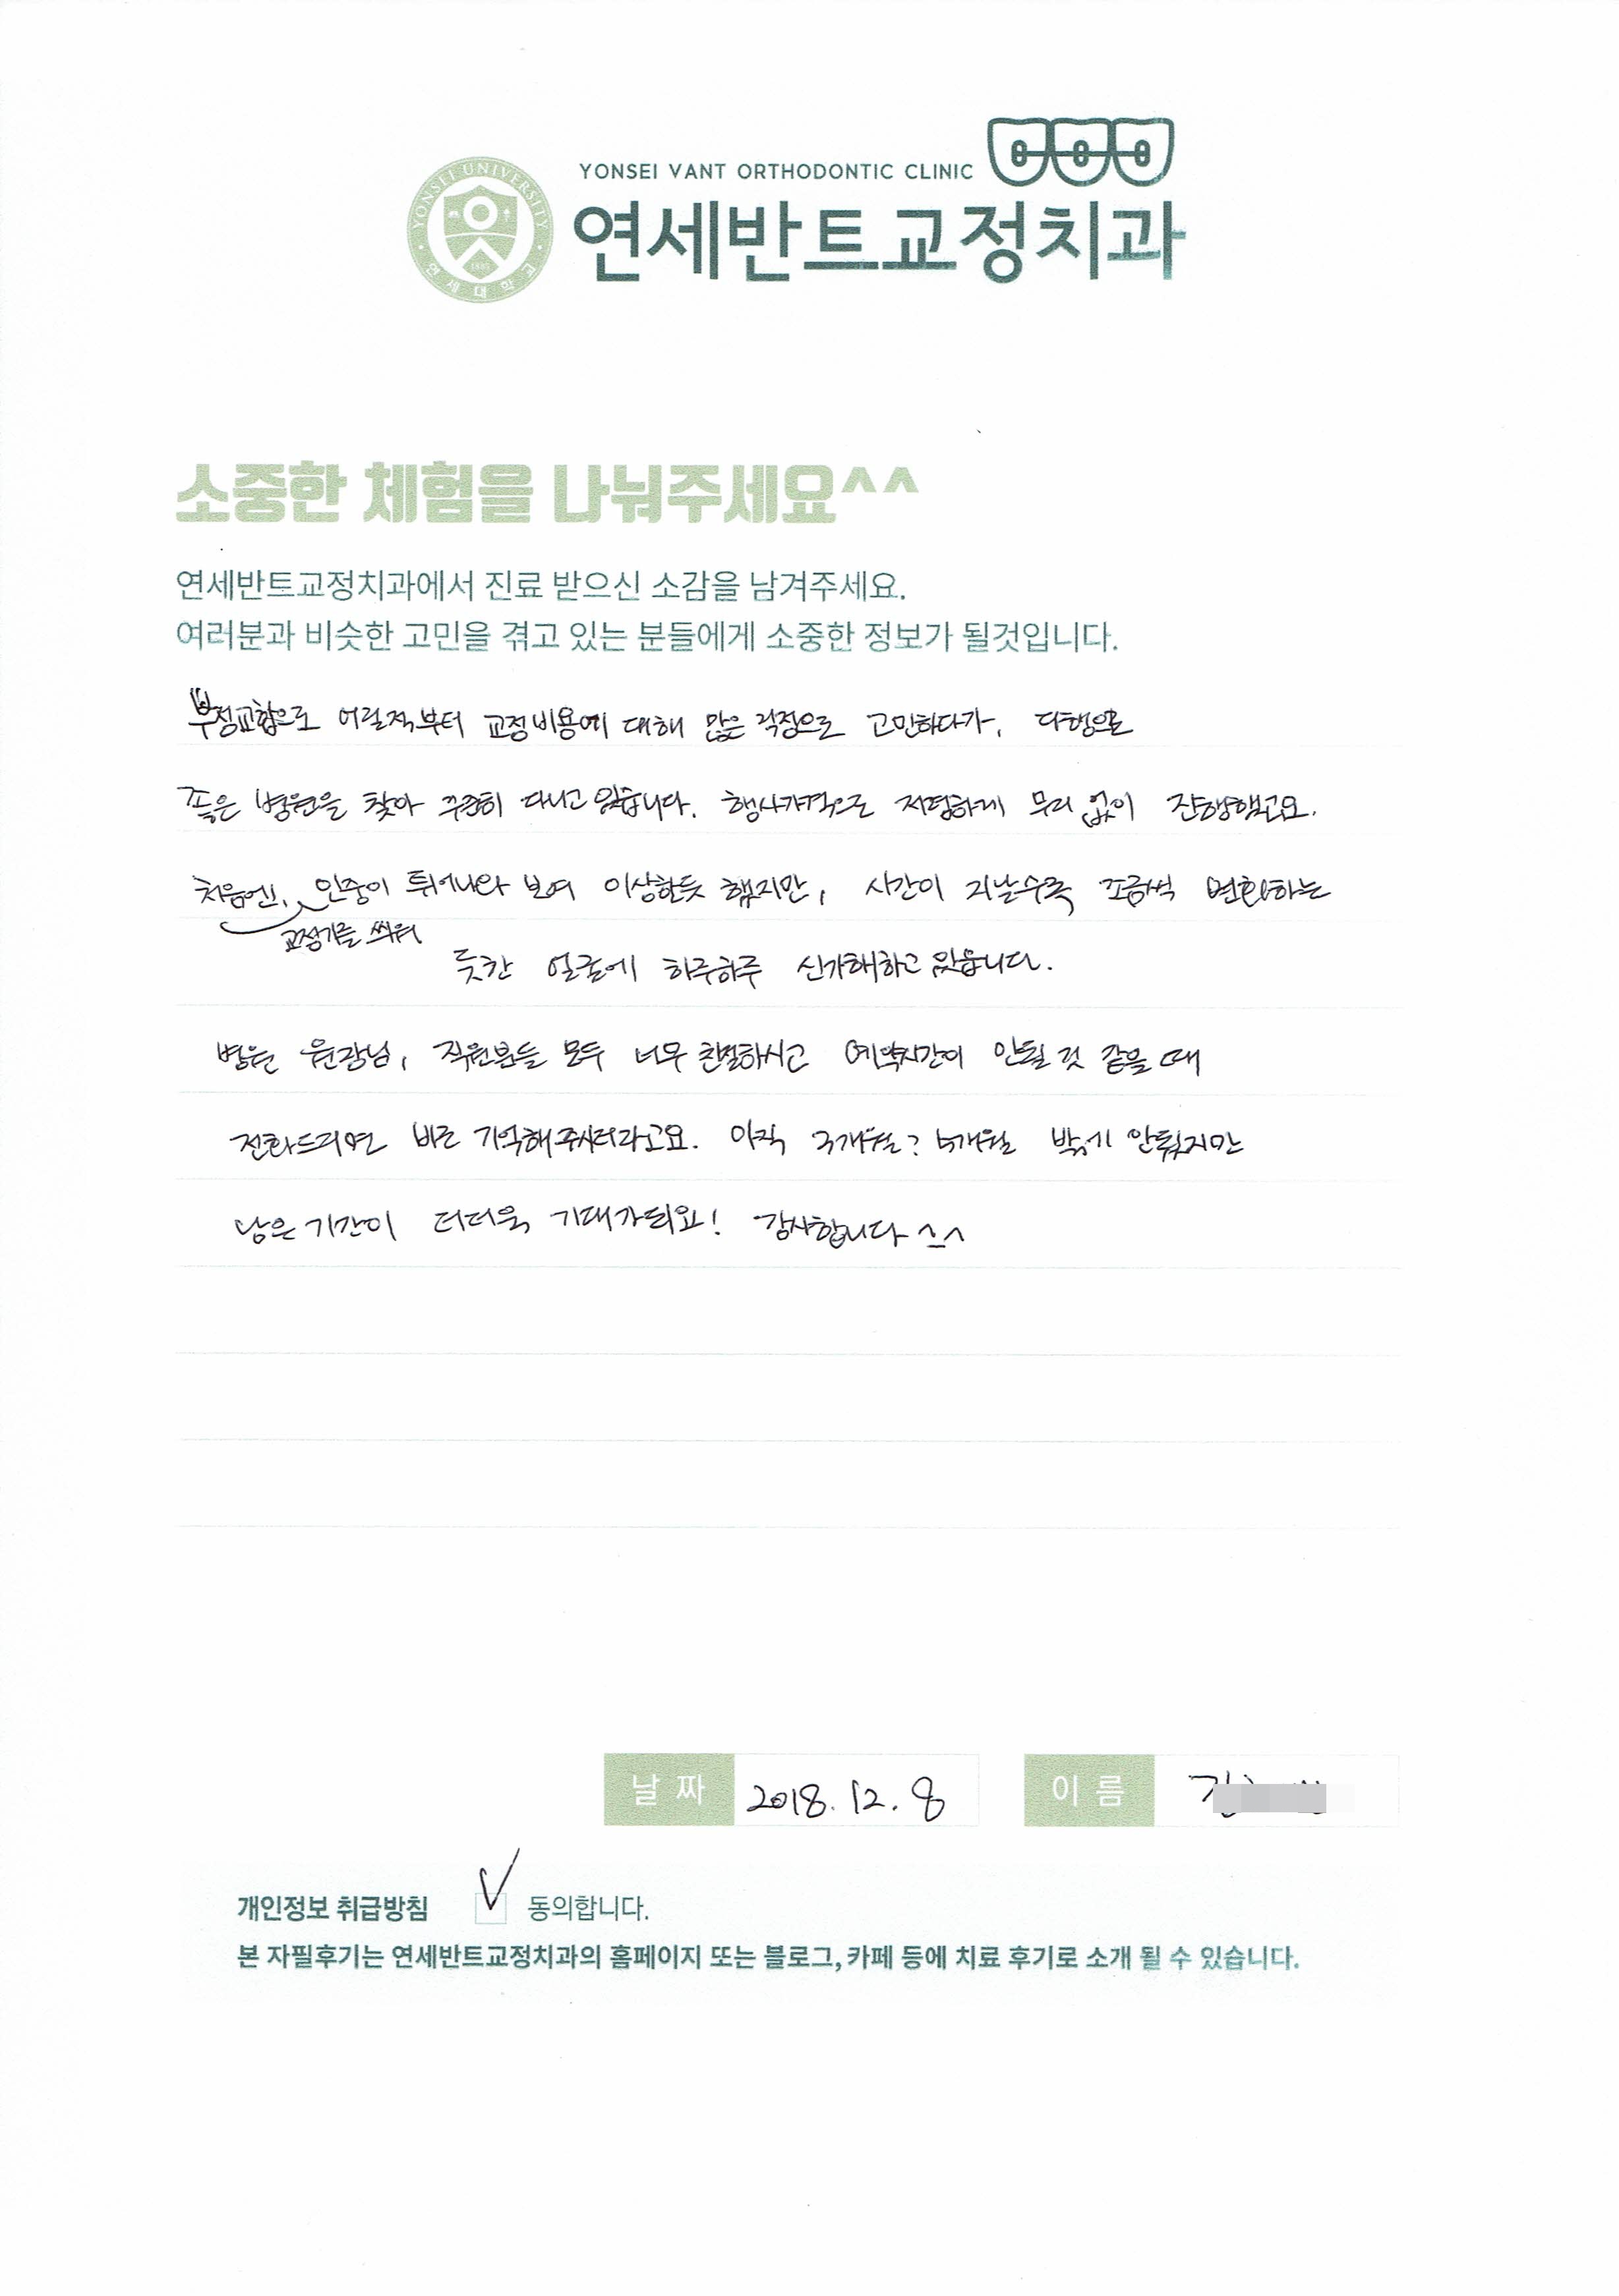 YONSEI VANT ORTHODONTIC CLINIC
연세반트교정치과
YONSEI UNIVERSITY
1885
연세대학교
소중한 체험을 나눠주세요^^
연세반트교정치과에서 진료 받으신 소감을 남겨주세요.
여러분과 비슷한 고민을 겪고 있는 분들에게 소중한 정보가 될것입니다.
부정교합으로 어릴적부터 교정비용에 대해 많은 걱정으로 고민하다가, 다행으로
좋은 병원을 찾아 꾸준히 다니고 있습니다. 행사가격으로 저렴하게 무리 없이 진행했고요.
처음엔, 인중이 튀어나와 보여 이상한듯 했지만, 시간이 지날수록 조금씩 변화하는
교정기를 씌워
듯한 얼굴에 하루하루 신기해하고 있습니다.
병원 원장님, 직원분들 모두 너무 친절하시고 예약시간이 안될 것 같을 때
전화드리면 바로 기억해주시더라고요. 아직 3개월? 4개월 밖에 안됐지만
남은 기간이 더더욱 기대가되요! 감사합니다 ^_^
날짜 2018. 12. 8 이름 김
개인정보 취급방침 동의합니다.
본 자필후기는 연세반트교정치과의 홈페이지 또는 블로그, 카페 등에 치료 후기로 소개 될 수 있습니다.